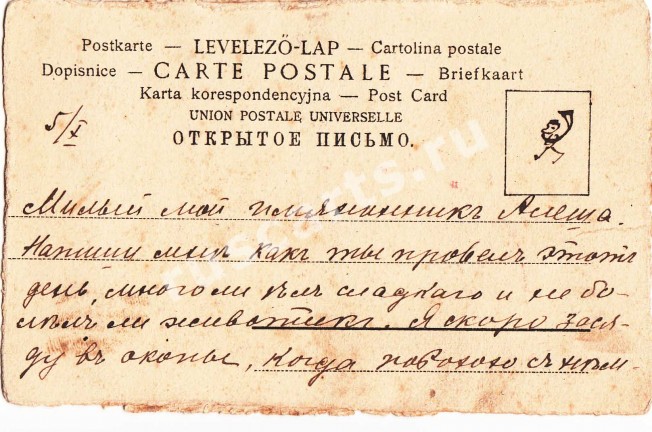 Postkarte — LEVELEZŐ-LAP — Cartolina postale
Dopisnice — CARTE POSTALE — Briefkaart
Karta korespondencyjna — Post Card
UNION POSTALE UNIVERSELLE
ОТКРЫТОЕ ПИСЬМО.
5/X
Милый мой имянинникъ Алеша.
Напиши мнѣ какъ ты провелъ этотъ
день, много ли ѣлъ сладкаго и не бо-
лѣлъ ли животикъ. Я скоро зася-
ду въ окопы, когда повоюю съ нѣм-
ruscarts.ru